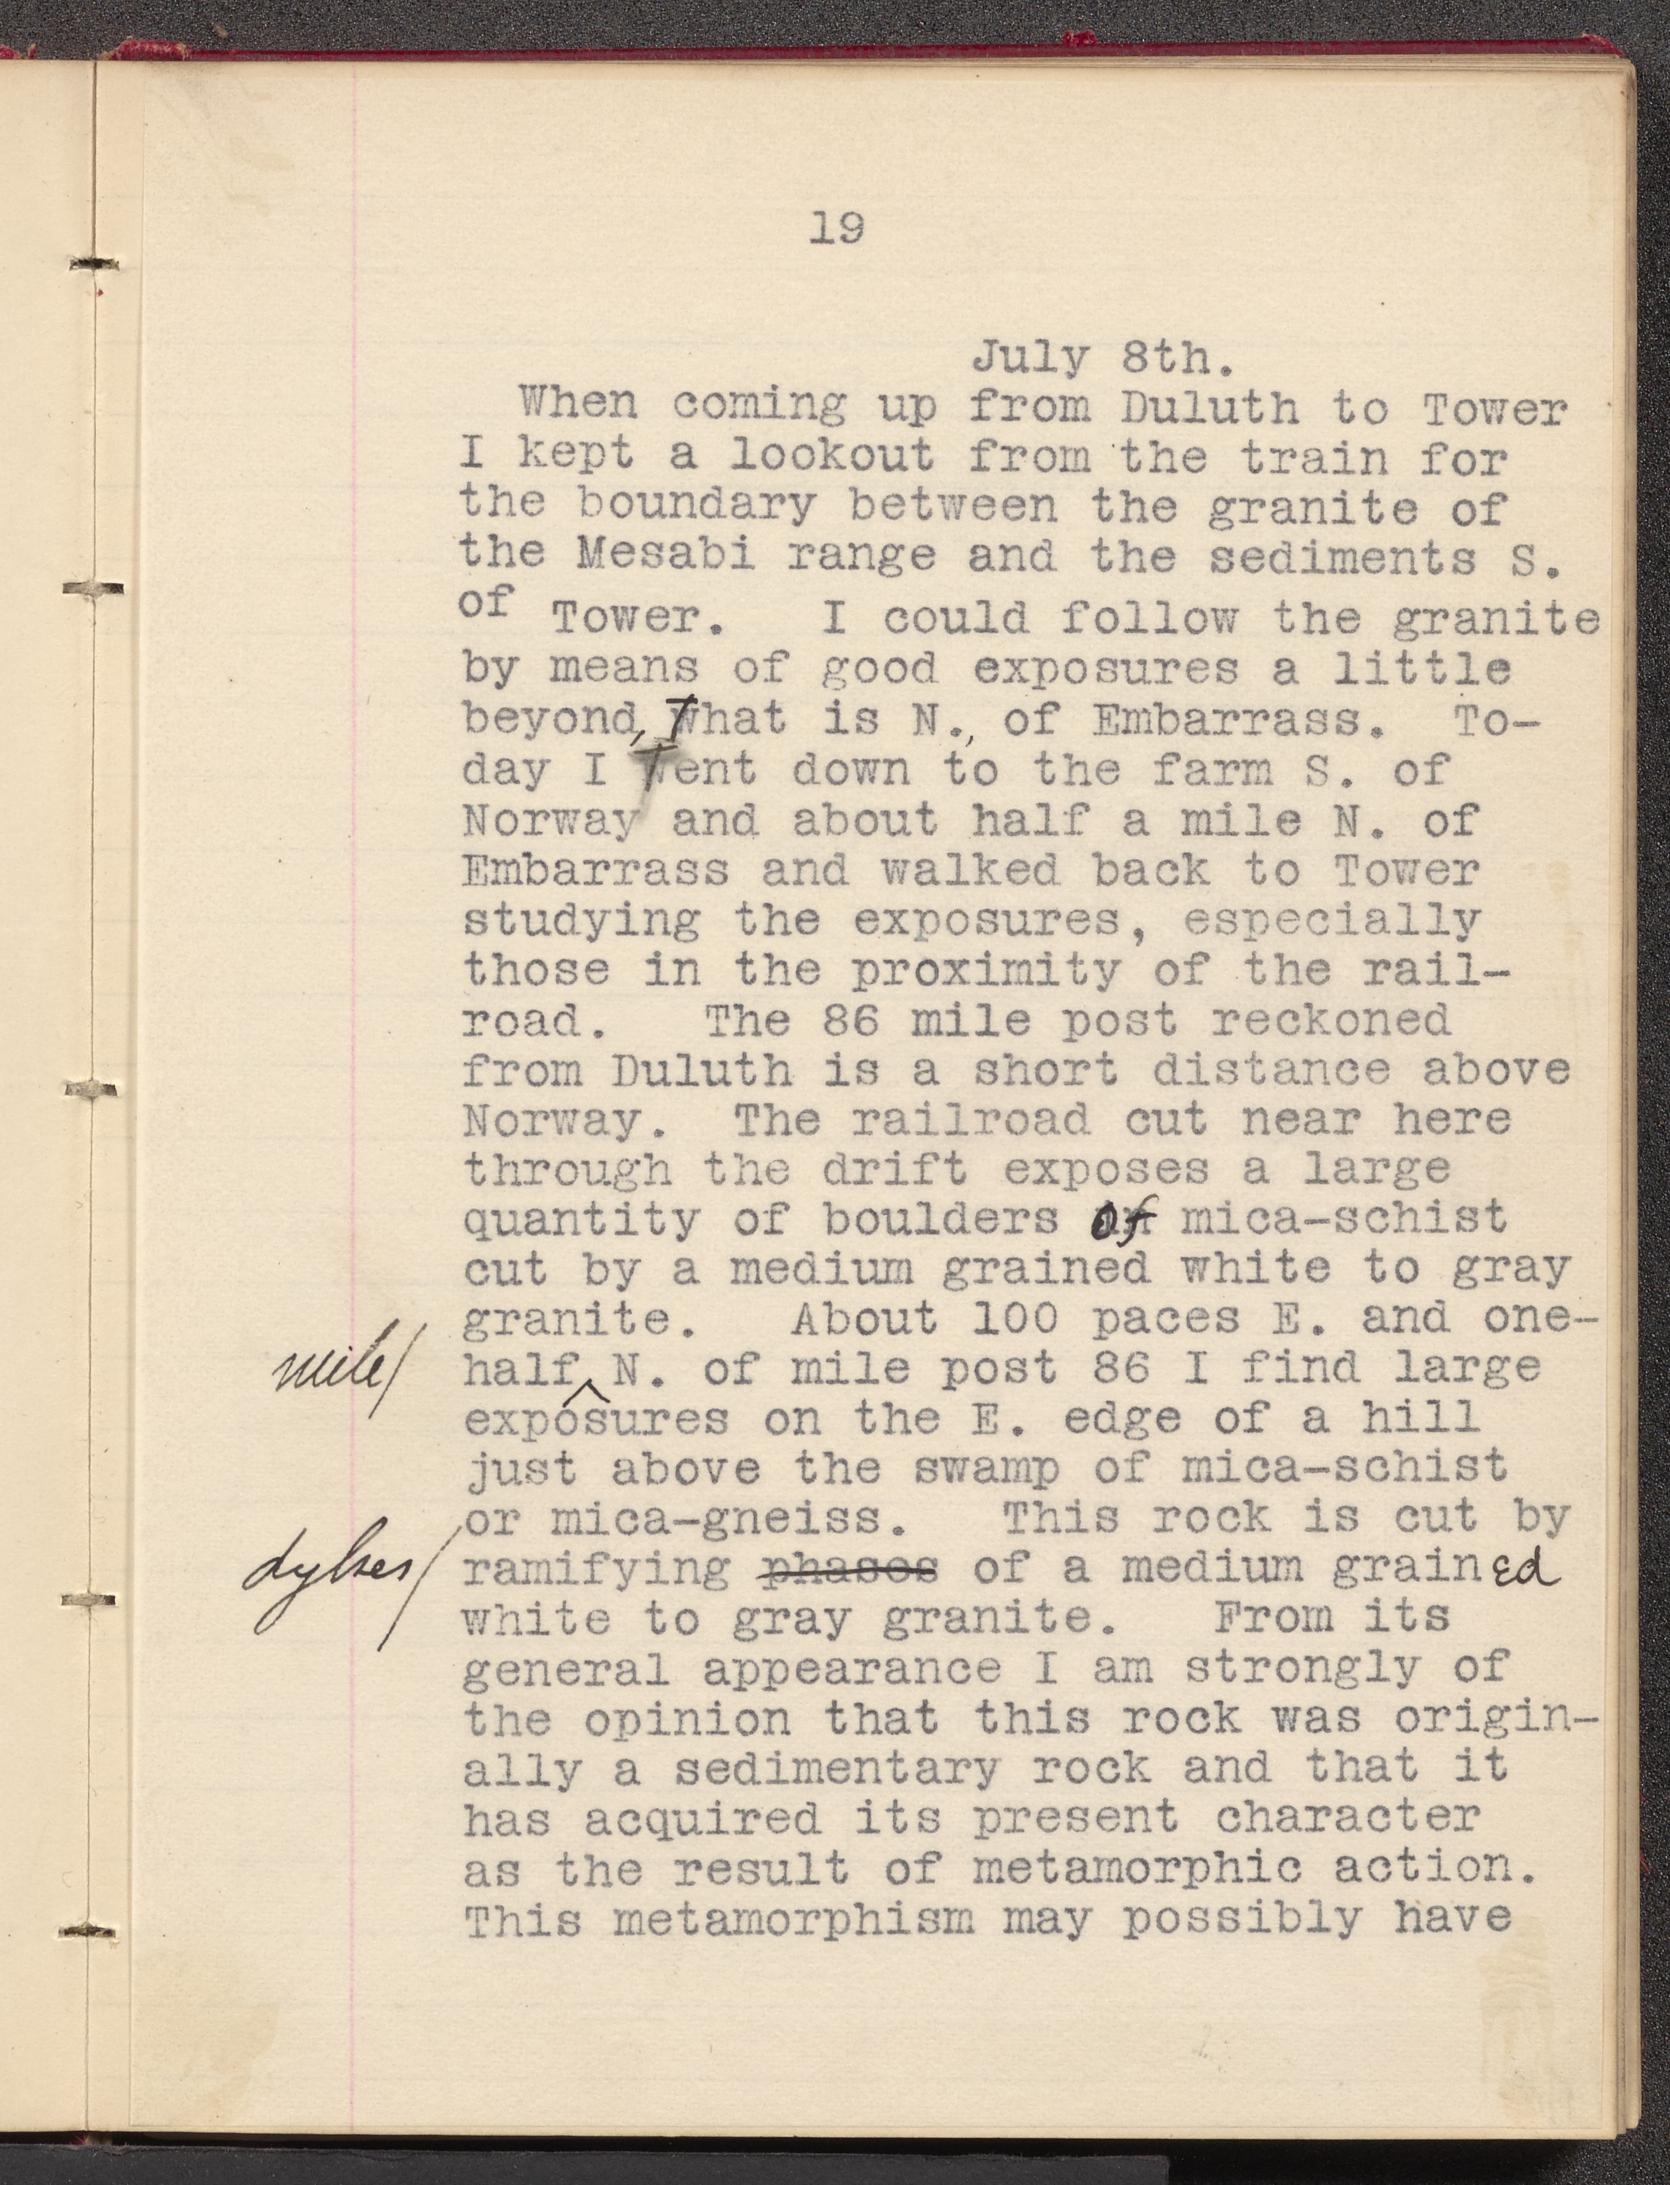 19
July 8th.
When coming up from Duluth to Tower
I kept a lookout from the train for
the boundary between the granite of
the Mesabi range and the sediments S.
of Tower. I could follow the granite
by means of good exposures a little
beyond, That is N., of Embarrass. To-
day I went down to the farm S. of
Norway and about half a mile N. of
Embarrass and walked back to Tower
studying the exposures, especially
those in the proximity of the rail-
road. The 86 mile post reckoned
from Duluth is a short distance above
Norway. The railroad cut near here
through the drift exposes a large
quantity of boulders of mica-schist
cut by a medium grained white to gray
granite. About 100 paces E. and one-
mile/ half ^ N. of mile post 86 I find large
exposures on the E. edge of a hill
just above the swamp of mica-schist
or mica-gneiss. This rock is cut by
dykes/ ramifying phases of a medium grained
white to gray granite. From its
general appearance I am strongly of
the opinion that this rock was origin-
ally a sedimentary rock and that it
has acquired its present character
as the result of metamorphic action.
This metamorphism may possibly have